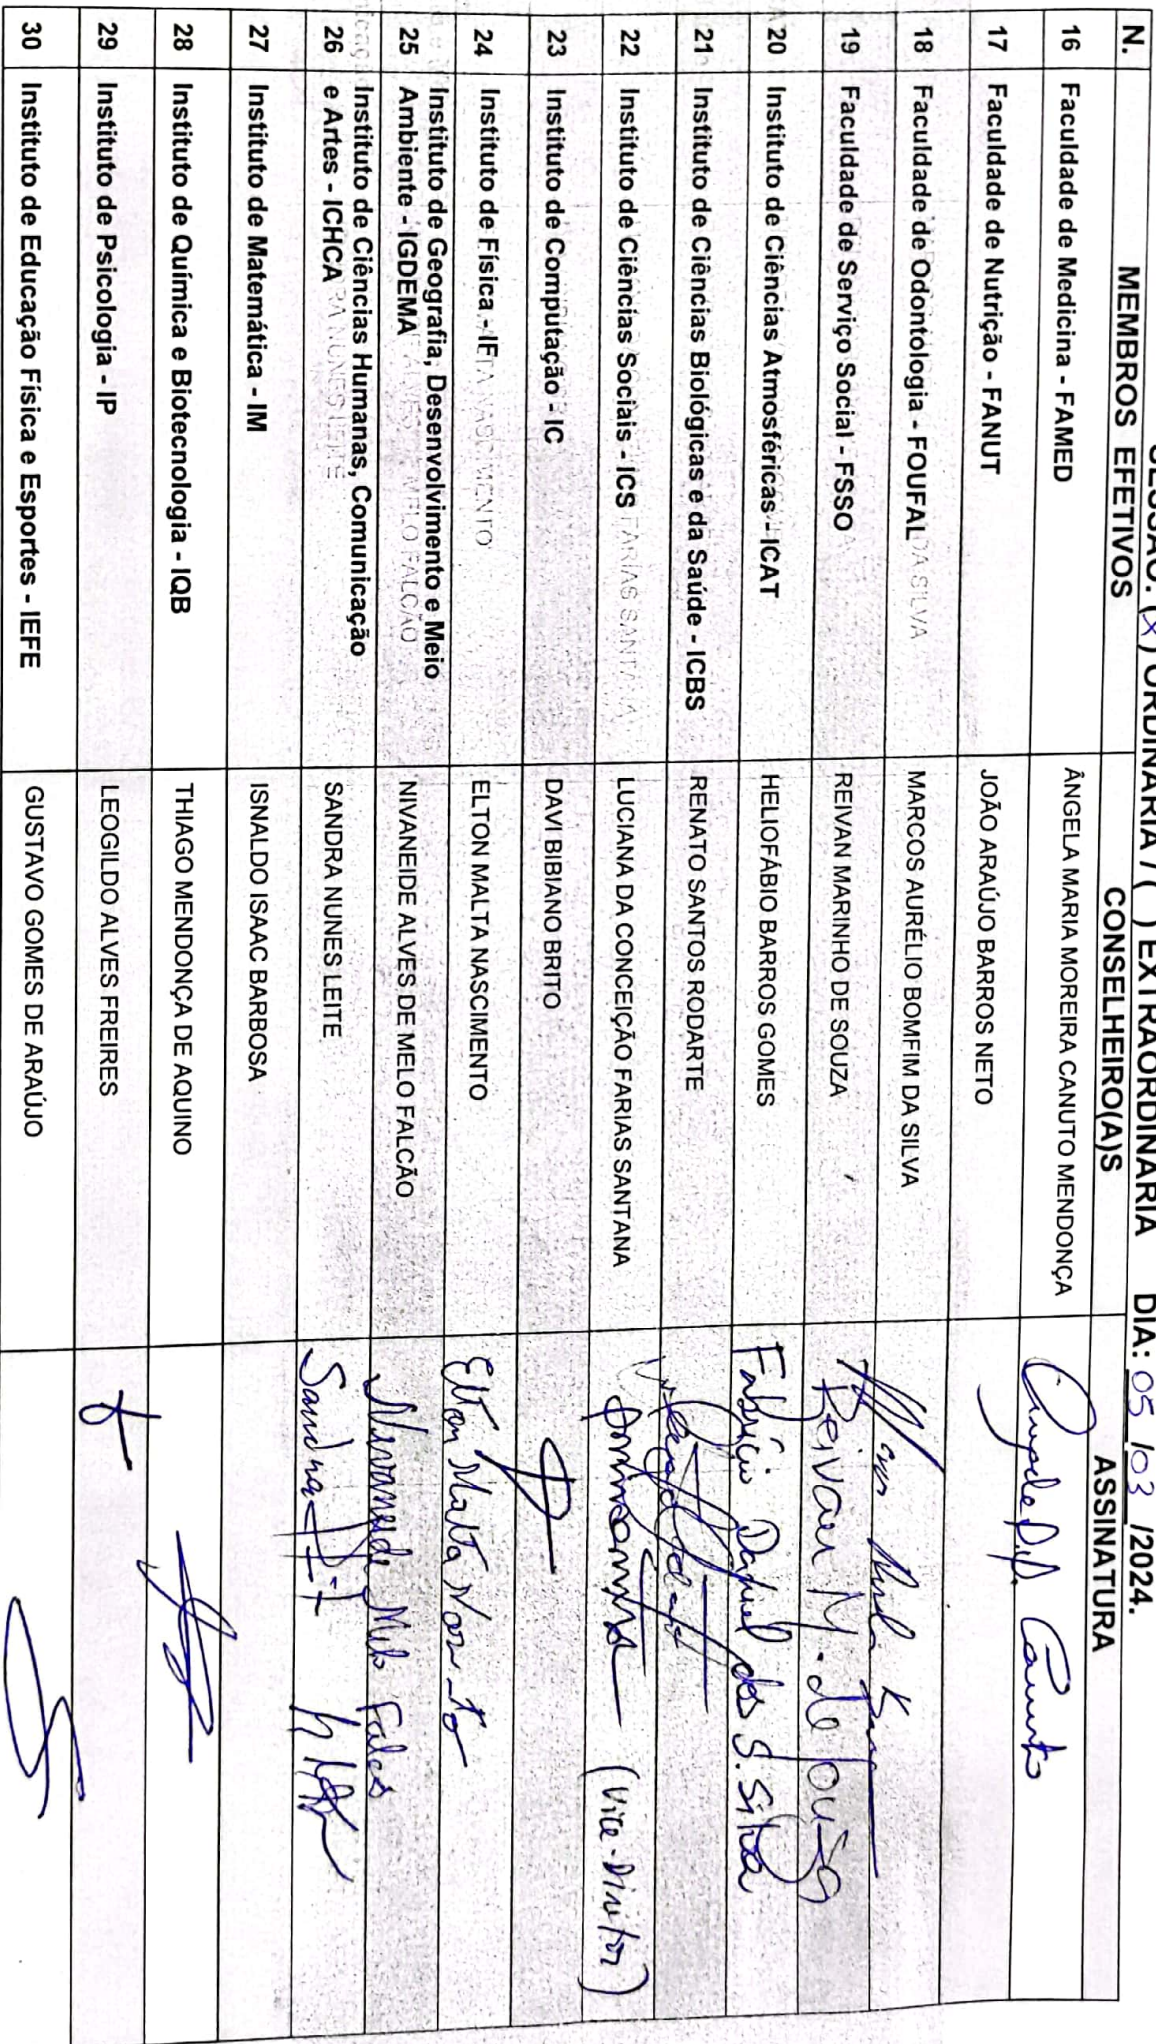 SESSÃO: (X) ORDINÁRIA / ( ) EXTRAORDINÁRIA DIA: 05 /03 /2024.
N. MEMBROS EFETIVOS CONSELHEIRO(A)S ASSINATURA
16 Faculdade de Medicina - FAMED ÂNGELA MARIA MOREIRA CANUTO MENDONÇA Canuto
17 Faculdade de Nutrição - FANUT JOÃO ARAÚJO BARROS NETO
18 Faculdade de Odontologia - FOUFAL MARCOS AURÉLIO BOMFIM DA SILVA
19 Faculdade de Serviço Social - FSSO REIVAN MARINHO DE SOUZA Reivan M. de Souza
20 Instituto de Ciências Atmosféricas - ICAT HELIOFÁBIO BARROS GOMES Fabrício Daniel dos S. Silva
21 Instituto de Ciências Biológicas e da Saúde - ICBS RENATO SANTOS RODARTE
22 Instituto de Ciências Sociais - ICS LUCIANA DA CONCEIÇÃO FARIAS SANTANA (Vice-Diretor)
23 Instituto de Computação - IC DAVI BIBIANO BRITO
24 Instituto de Física - IF ELTON MALTA NASCIMENTO Elton Malta
25 Instituto de Geografia, Desenvolvimento e Meio
Ambiente - IGDEMA NIVANEIDE ALVES DE MELO FALCÃO Nivaneide Melo Falcão
26 Instituto de Ciências Humanas, Comunicação
e Artes - ICHCA SANDRA NUNES LEITE Sandra
27 Instituto de Matemática - IM ISNALDO ISAAC BARBOSA
28 Instituto de Química e Biotecnologia - IQB THIAGO MENDONÇA DE AQUINO
29 Instituto de Psicologia - IP LEOGILDO ALVES FREIRES
30 Instituto de Educação Física e Esportes - IEFE GUSTAVO GOMES DE ARAÚJO